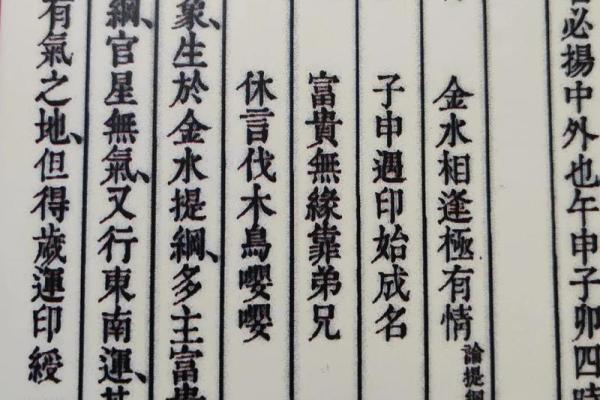 必揚中外也午申子卯四時
金水相逢極有情論提綱
子申遇印始成名
富貴無緣靠弟兄
休言伐木鳥嚶嚶
象、生於金水提綱、多主富貴
綱、官星無氣、又行東南運、其
有氣之地、但得歲運印綬